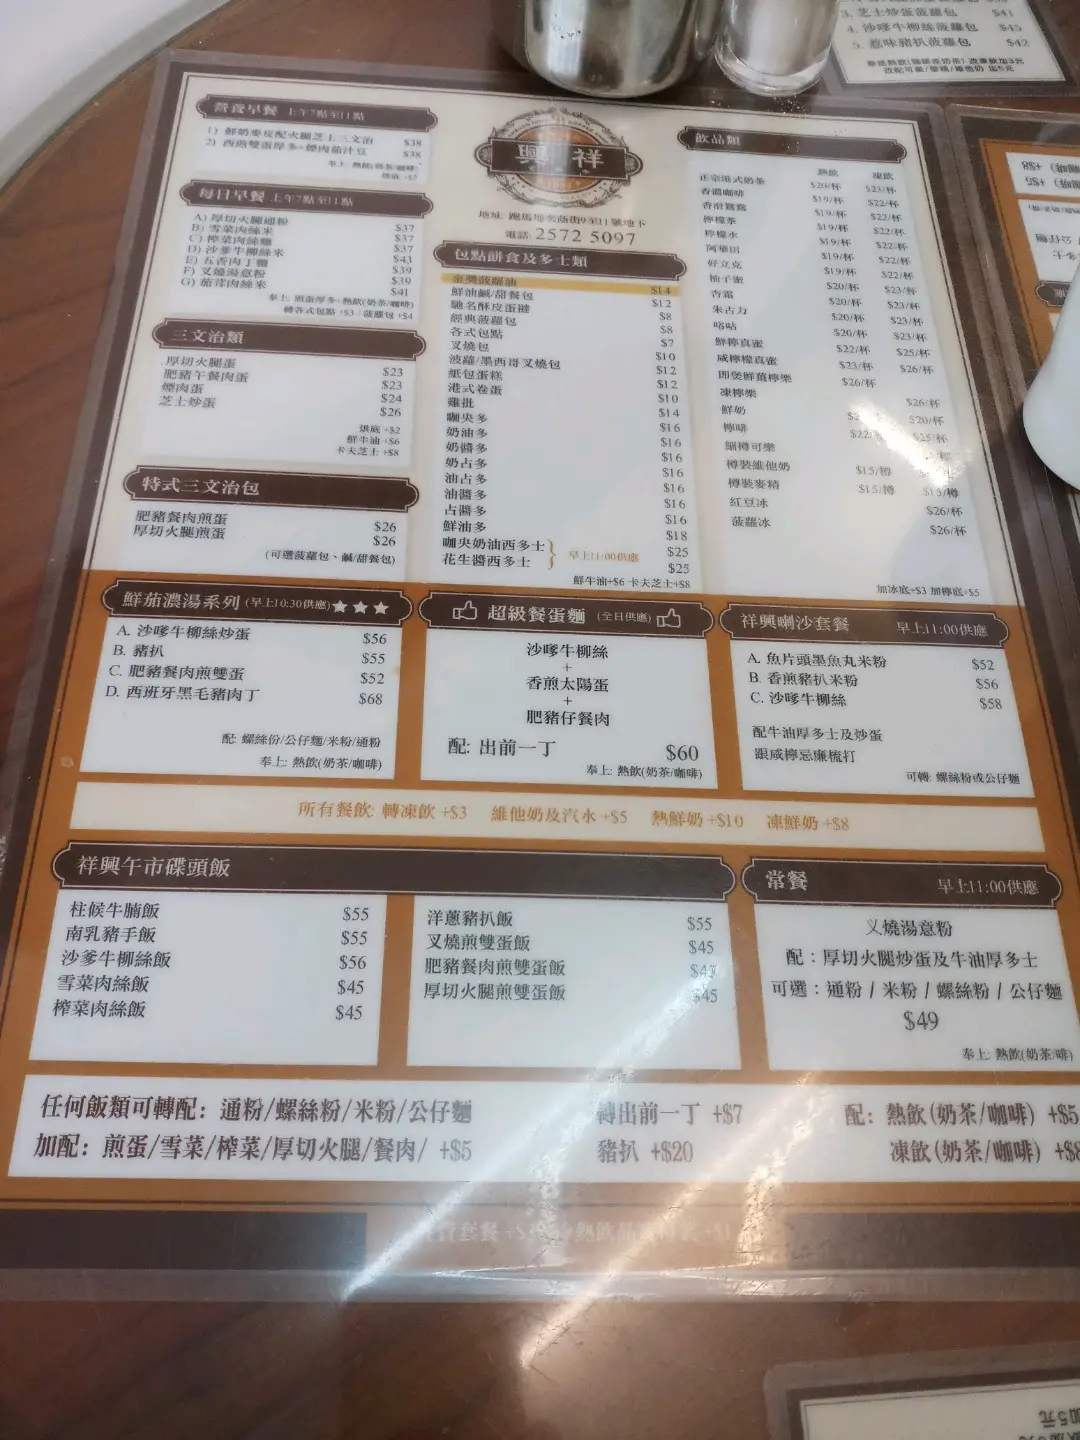 3. 芝士炒蛋菠蘿包 $41
4. 沙嗲牛柳絲菠蘿包 $45
5. 惹味豬扒菠蘿包 $42
營養早餐 上午7點至11點
1) 鮮奶麥皮配火腿芝士三文治 $38
2) 西煎雙蛋厚多+煙肉茄汁豆 $38
奉上: 熱飲(奶茶/咖啡)
每日早餐 上午7點至11點
A) 厚切火腿通粉 $37
B) 雪菜肉絲米 $37
C) 榨菜肉絲麵 $37
D) 沙爹牛柳絲米 $43
E) 五香肉丁麵 $39
F) 叉燒湯意粉 $39
G) 茄茸肉絲米 $41
奉上: 煎蛋厚多+熱飲(奶茶/咖啡)
轉各式包點 +$3 / 菠蘿包 +$4
三文治類
厚切火腿蛋 $23
肥豬午餐肉蛋 $23
煙肉蛋 $24
芝士炒蛋 $26
烘底 +$2
鮮牛油 +$6
卡夫芝士 +$8
特式三文治包
肥豬餐肉煎蛋 $26
厚切火腿煎蛋 $26
(可選菠蘿包、鹹/甜餐包)
興祥
地址: 跑馬地奕蔭街9至11號地下
電話: 2572 5097
包點餅食及多士類
金奧菠蘿油 $14
鮮油鹹/甜餐包 $12
馳名酥皮蛋撻 $8
經典菠蘿包 $8
各式包點 $7
叉燒包 $10
菠蘿/墨西哥叉燒包 $12
紙包蛋糕 $12
港式卷蛋 $10
雞批 $14
咖央多 $16
奶油多 $16
奶醬多 $16
奶占多 $16
油占多 $16
油醬多 $16
占醬多 $16
鮮油多 $18
咖央奶油西多士 $25
花生醬西多士 $25
早上11:00供應
鮮牛油+$6 卡夫芝士+$8
飲品類
熱飲 凍飲
正宗港式奶茶 $20/杯 $23/杯
香濃咖啡 $19/杯 $22/杯
香滑鴛鴦 $19/杯 $22/杯
檸檬茶 $19/杯 $22/杯
檸檬水 $19/杯 $22/杯
阿華田 $19/杯 $22/杯
好立克 $19/杯 $22/杯
柚子蜜 $20/杯 $23/杯
杏霜 $20/杯 $23/杯
朱古力 $20/杯 $23/杯
咯咕 $20/杯 $23/杯
鮮檸真蜜 $22/杯 $25/杯
咸檸檬真蜜 $23/杯 $26/杯
即煲鮮薑檸樂 $26/杯
凍檸樂 $26/杯
鮮奶 $20/杯
檸啡 $25/杯
樽可樂
樽裝維他奶 $15/樽 $15/樽
樽裝麥精 $15/樽
紅豆冰 $26/杯
菠蘿冰 $26/杯
加冰底+$3 加檸底+$5
鮮茄濃湯系列 (早上10:30供應)
A. 沙嗲牛柳絲炒蛋 $56
B. 豬扒 $55
C. 肥豬餐肉煎雙蛋 $52
D. 西班牙黑毛豬肉丁 $68
配: 螺絲份/公仔麵/米粉/通粉
奉上: 熱飲(奶茶/咖啡)
超級餐蛋麵 (全日供應)
沙嗲牛柳絲
+
香煎太陽蛋
+
肥豬仔餐肉
配: 出前一丁 $60
奉上: 熱飲(奶茶/咖啡)
祥興喇沙套餐 早上11:00供應
A. 魚片頭墨魚丸米粉 $52
B. 香煎豬扒米粉 $56
C. 沙嗲牛柳絲 $58
配牛油厚多士及炒蛋
跟咸檸忌廉梳打
可轉: 螺絲粉或公仔麵
所有餐飲: 轉凍飲 +$3 維他奶及汽水 +$5 熱鮮奶 +$10 凍鮮奶 +$8
祥興午市碟頭飯
柱候牛腩飯 $55
南乳豬手飯 $55
沙爹牛柳絲飯 $56
雪菜肉絲飯 $45
榨菜肉絲飯 $45
洋蔥豬扒飯 $55
叉燒煎雙蛋飯 $45
肥豬餐肉煎雙蛋飯
厚切火腿煎雙蛋飯 $45
常餐 早上11:00供應
乂燒湯意粉
配：厚切火腿炒蛋及牛油厚多士
可選：通粉 / 米粉 / 螺絲粉 / 公仔麵
$49
奉上: 熱飲(奶茶/啡)
任何飯類可轉配: 通粉/螺絲粉/米粉/公仔麵 轉出前一丁 +$7 配: 熱飲(奶茶/咖啡) +$5
加配: 煎蛋/雪菜/榨菜/厚切火腿/餐肉/ +$5 豬扒 +$20 凍飲(奶茶/咖啡) +$8